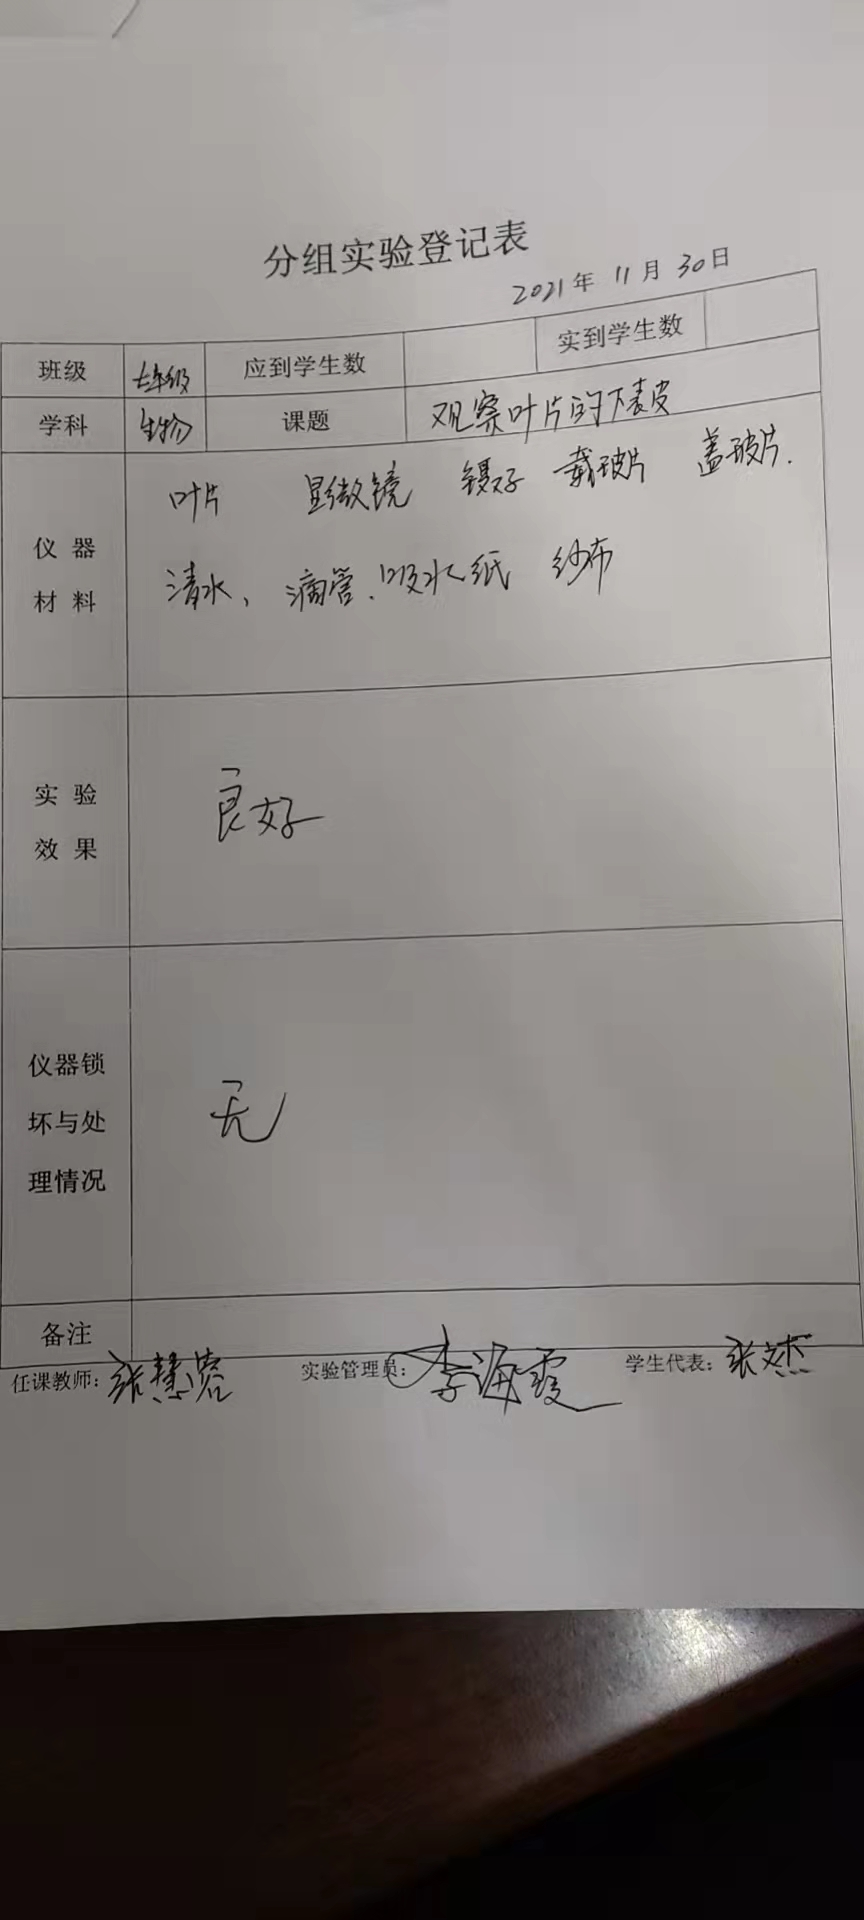 分组实验登记表
2021年 11月 30日
班级 七年级 应到学生数 实到学生数
学科 生物 课题 观察叶片的下表皮
仪器材料
叶片 显微镜 镊子 载玻片 盖玻片.
清水、滴管、吸水纸 纱布
实验效果
良好
仪器锁坏与处理情况
无
备注
任课教师: 张慧 实验管理员: 李海霞 学生代表: 张文杰